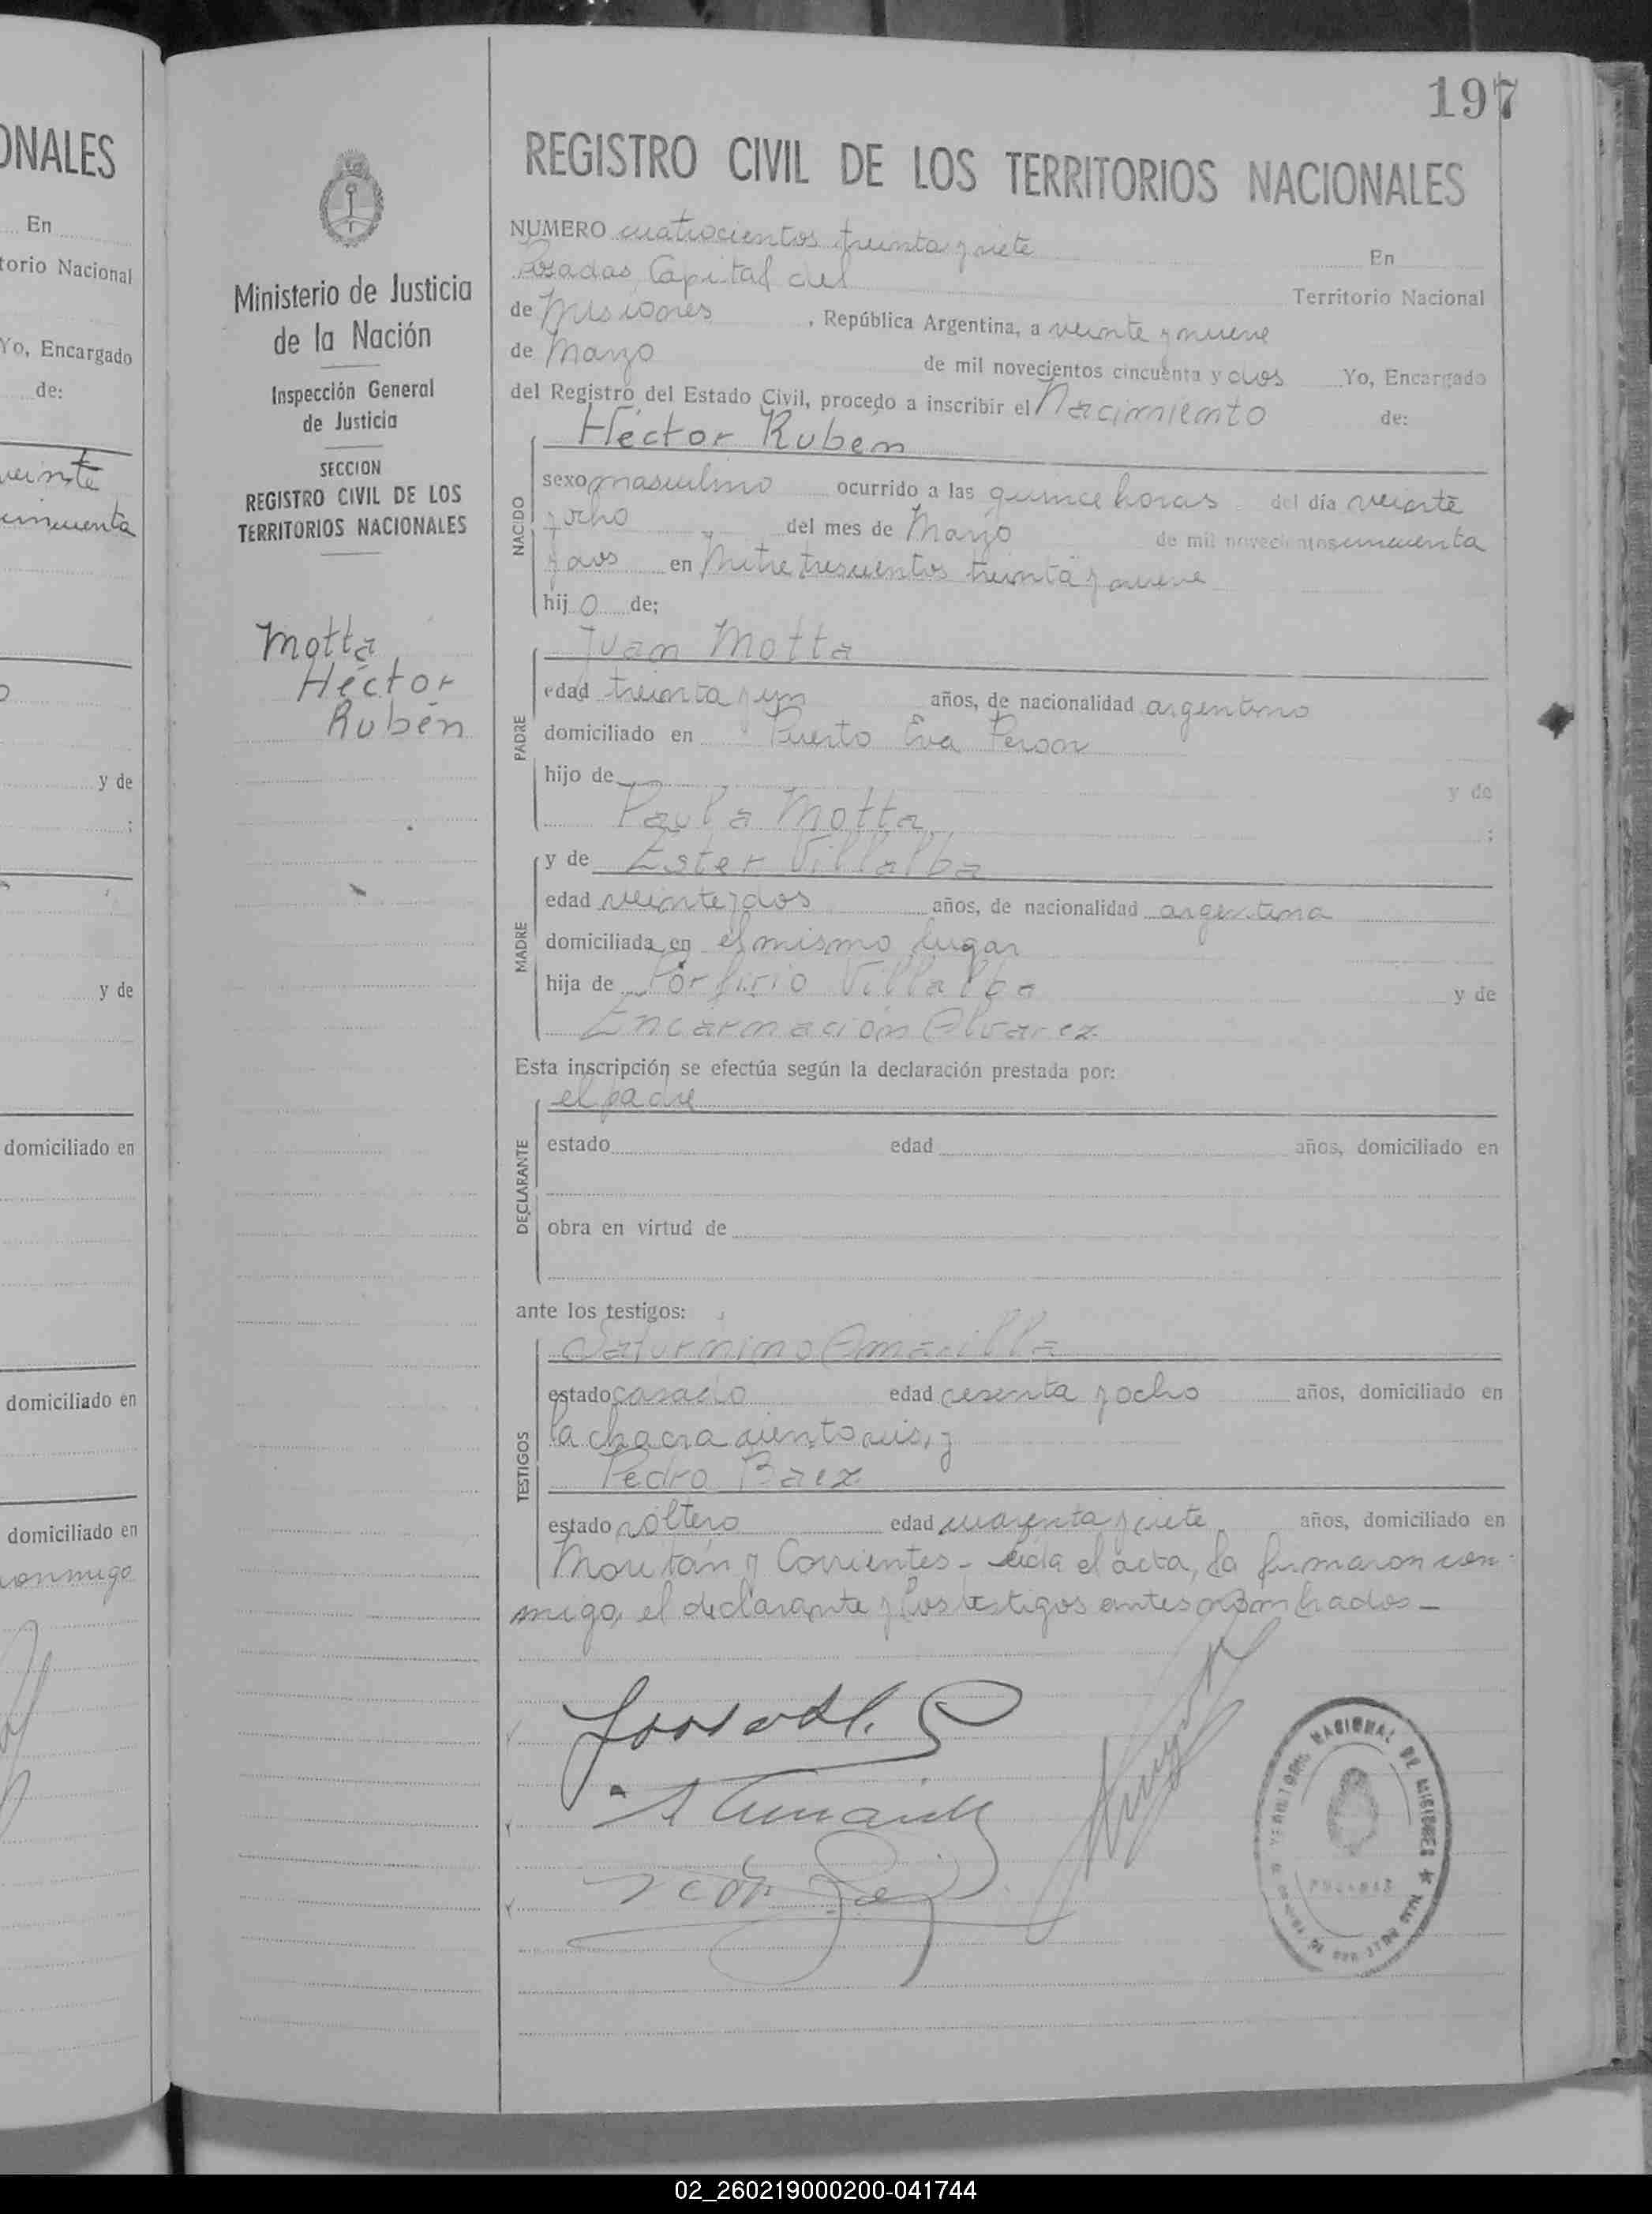 ONALES
En
torio Nacional
Yo, Encargado
de:
veinte
cincuenta
y de
;
y de
domiciliado en
domiciliado en
domiciliado en
conmigo
Ministerio de Justicia
de la Nación
Inspección General
de Justicia
SECCION
REGISTRO CIVIL DE LOS
TERRITORIOS NACIONALES
Motta
Héctor
Rubén
197
REGISTRO CIVIL DE LOS TERRITORIOS NACIONALES
NUMERO cuatrocientos treinta y siete En
Posadas, Capital del Territorio Nacional
de Misiones, República Argentina, a veinte y nueve
de Marzo de mil novecientos cincuenta y dos Yo, Encargado
del Registro del Estado Civil, procedo a inscribir el Nacimiento de:
Héctor Rubén
NACIDO
sexo masculino ocurrido a las quince horas del día veinte
y ocho del mes de Marzo de mil novecientos cincuenta
y dos en Mitre trescientos treinta y nueve
hijo de;
Juan Motta
PADRE
edad treinta y un años, de nacionalidad argentino
domiciliado en Puerto Eva Peron
hijo de y de
Paula Motta ;
MADRE
y de Ester Villalba
edad veinte y dos años, de nacionalidad argentina
domiciliada en el mismo lugar
hija de Porfirio Villalba y de
Encarnación Alvarez
Esta inscripción se efectúa según la declaración prestada por:
el padre
DECLARANTE
estado edad años, domiciliado en
obra en virtud de
ante los testigos:
Saturnino Amarilla
TESTIGOS
estado casado edad sesenta y ocho años, domiciliado en
la chacra ciento seis, y
Pedro Baez
estado soltero edad cuarenta y siete años, domiciliado en
Moritán y Corrientes - Leída el acta, la firmaron con-
migo, el declarante y los testigos antes nombrados -
NACIONAL DE MISIONES
POSADAS
02_260219000200-041744